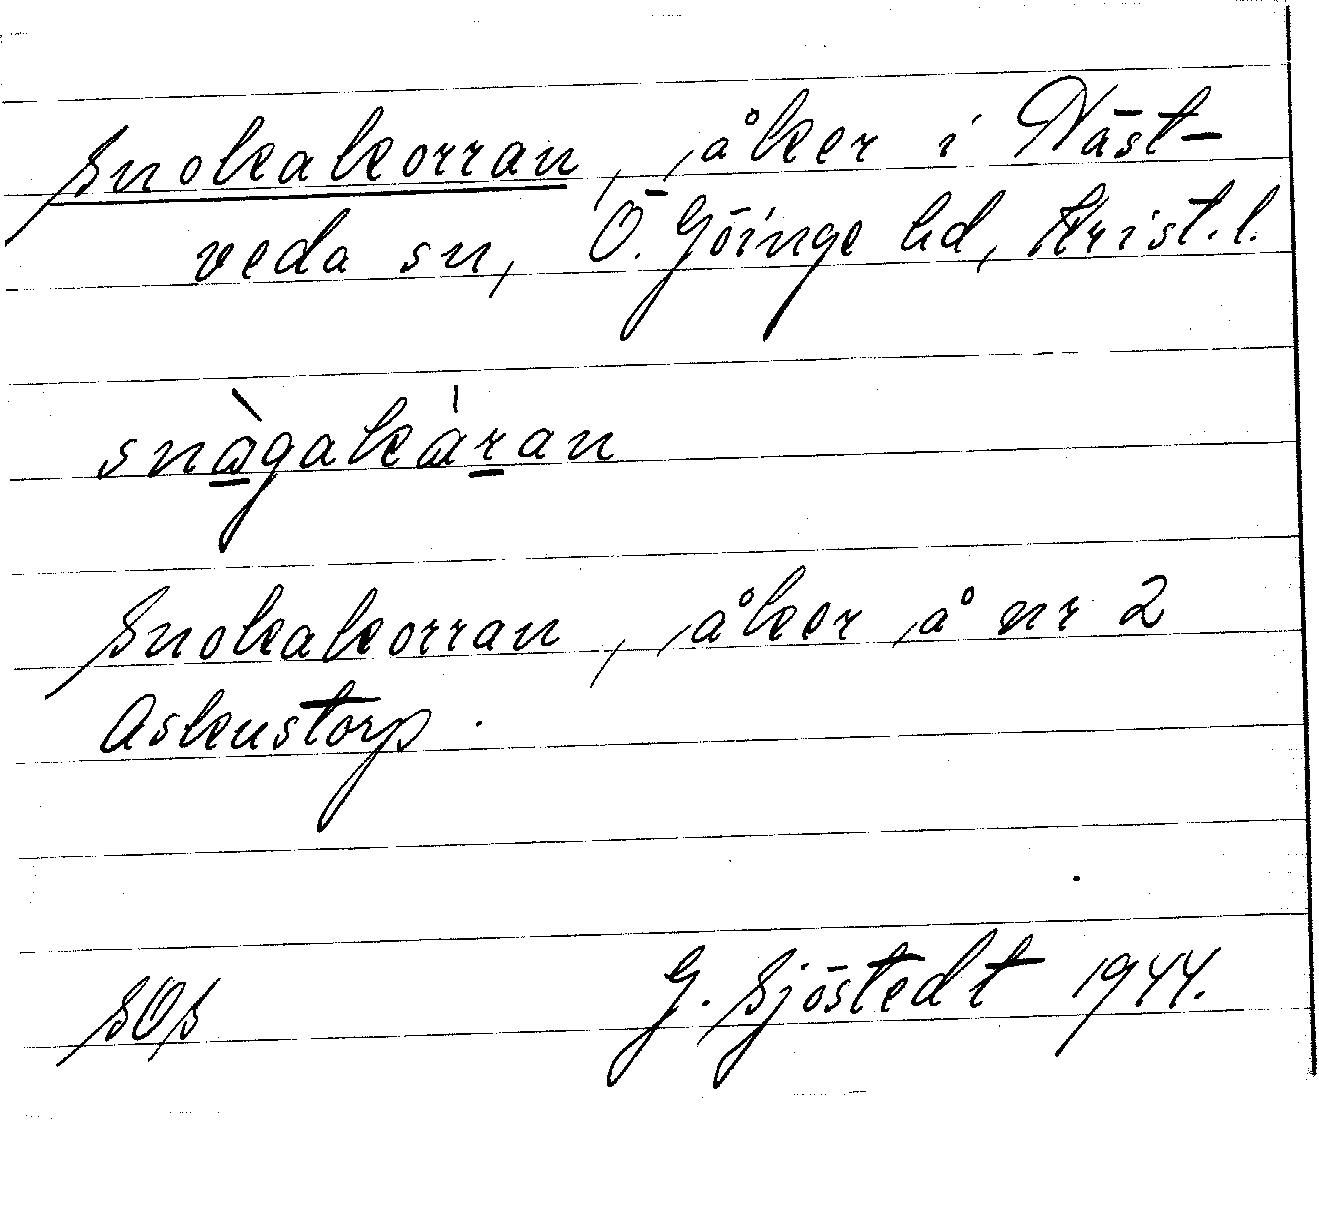 Snokakorran, åker i Näst-
veda sn, Ö. Göinge hd, Krist. l.
snågakåran
Snokakorran, åker å nr 2
Askustorp.
SOS G. Sjöstedt 1944.